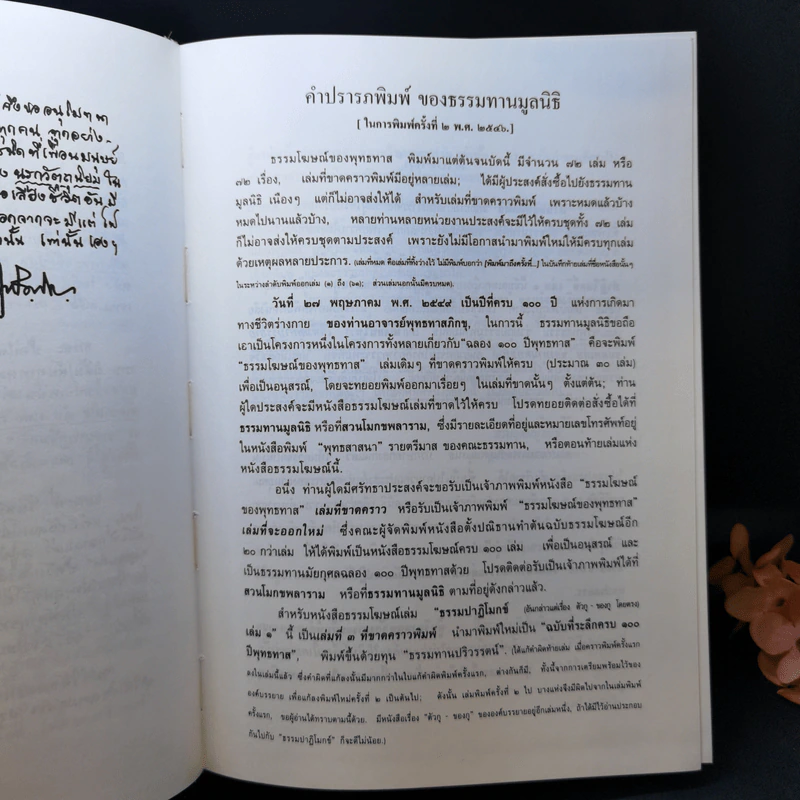 ทุกคน ทุกอย่าง
ที่เพื่อนมนุษย์
เท่านั้นเอง ๆ
คำปรารภพิมพ์ ของธรรมทานมูลนิธิ
[ ในการพิมพ์ครั้งที่ ๒ พ.ศ. ๒๕๔๖.]
ธรรมโฆษณ์ของพุทธทาส พิมพ์มาแต่ต้นจนบัดนี้ มีจำนวน ๗๒ เล่ม หรือ
๗๒ เรื่อง, เล่มที่ขาดคราวพิมพ์มีอยู่หลายเล่ม; ได้มีผู้ประสงค์สั่งซื้อไปยังธรรมทาน
มูลนิธิ เนืองๆ แต่ก็ไม่อาจส่งให้ได้ สำหรับเล่มที่ขาดคราวพิมพ์ เพราะหมดแล้วบ้าง
หมดไปนานแล้วบ้าง, หลายท่านหลายหน่วยงานประสงค์จะมีไว้ให้ครบชุดทั้ง ๗๒ เล่ม
ก็ไม่อาจส่งให้ครบชุดตามประสงค์ เพราะยังไม่มีโอกาสนำมาพิมพ์ใหม่ให้มีครบทุกเล่ม
ด้วยเหตุผลหลายประการ. (เล่มที่หมด คือเล่มที่ทิ้งว่างไว้ ไม่มีพิมพ์บอกว่า [พิมพ์มาถึงครั้งที่...] ในบันทึกท้ายเล่มที่ชื่อหนังสือนั้นๆ
ในระหว่างลำดับพิมพ์ออกเล่ม (๑) ถึง (๖๑); ส่วนเล่มนอกนั้นมีครบหมด).
วันที่ ๒๗ พฤษภาคม พ.ศ. ๒๕๔๙ เป็นปีที่ครบ ๑๐๐ ปี แห่งการเกิดมา
ทางชีวิตร่างกาย ของท่านอาจารย์พุทธทาสภิกขุ, ในการนี้ ธรรมทานมูลนิธิขอถือ
เอาเป็นโครงการหนึ่งในโครงการทั้งหลายเกี่ยวกับ"ฉลอง ๑๐๐ ปีพุทธทาส" คือจะพิมพ์
"ธรรมโฆษณ์ของพุทธทาส" เล่มเดิมๆ ที่ขาดคราวพิมพ์ให้ครบ (ประมาณ ๓๐ เล่ม)
เพื่อเป็นอนุสรณ์, โดยจะทยอยพิมพ์ออกมาเรื่อยๆ ในเล่มที่ขาดนั้นๆ ตั้งแต่ต้น; ท่าน
ผู้ใดประสงค์จะมีหนังสือธรรมโฆษณ์เล่มที่ขาดไว้ให้ครบ โปรดทยอยติดต่อสั่งซื้อได้ที่
ธรรมทานมูลนิธิ หรือที่สวนโมกขพลาราม, ซึ่งมีรายละเอียดที่อยู่และหมายเลขโทรศัพท์อยู่
ในหนังสือพิมพ์ "พุทธสาสนา" รายตรีมาส ของคณะธรรมทาน, หรือตอนท้ายเล่มแห่ง
หนังสือธรรมโฆษณ์นี้.
อนึ่ง ท่านผู้ใดมีศรัทธาประสงค์จะขอรับเป็นเจ้าภาพพิมพ์หนังสือ "ธรรมโฆษณ์
ของพุทธทาส" เล่มที่ขาดคราว หรือรับเป็นเจ้าภาพพิมพ์ "ธรรมโฆษณ์ของพุทธทาส"
เล่มที่จะออกใหม่ ซึ่งคณะผู้จัดพิมพ์หนังสือตั้งปณิธานทำต้นฉบับธรรมโฆษณ์อีก
๒๐ กว่าเล่ม ให้ได้พิมพ์เป็นหนังสือธรรมโฆษณ์ครบ ๑๐๐ เล่ม เพื่อเป็นอนุสรณ์ และ
เป็นธรรมทานมัยกุศลฉลอง ๑๐๐ ปีพุทธทาสด้วย โปรดติดต่อรับเป็นเจ้าภาพพิมพ์ได้ที่
สวนโมกขพลาราม หรือที่ธรรมทานมูลนิธิ ตามที่อยู่ดังกล่าวแล้ว.
สำหรับหนังสือธรรมโฆษณ์เล่ม "ธรรมปาฏิโมกข์ (อันกล่าวแต่เรื่อง ตัวกู - ของกู โดยตรง)
เล่ม ๑" นี้ เป็นเล่มที่ ๓ ที่ขาดคราวพิมพ์ นำมาพิมพ์ใหม่เป็น "ฉบับที่ระลึกครบ ๑๐๐
ปีพุทธทาส", พิมพ์ขึ้นด้วยทุน "ธรรมทานปริวรรตน์". (ได้แก้คำผิดท้ายเล่ม เมื่อคราวพิมพ์ครั้งแรก
ลงในเล่มนี้แล้ว ซึ่งคำผิดที่แก้ลงนั้นมีมากกว่าในใบแก้คำผิดพิมพ์ครั้งแรก, ต่างกันก็มี, ทั้งนี้จากการเตรียมพร้อมไว้ของ
องค์บรรยาย เพื่อแก้ลงพิมพ์ใหม่ครั้งที่ ๒ เป็นต้นไป; ดังนั้น เล่มพิมพ์ครั้งที่ ๒ ไป บางแห่งจึงมีผิดไปจากในเล่มพิมพ์
ครั้งแรก, ขอผู้อ่านได้ทราบตามนี้ด้วย. มีหนังสือเรื่อง "ตัวกู - ของกู" ขององค์บรรยายอยู่อีกเล่มหนึ่ง, ถ้าได้มีไว้อ่านประกอบ
กันไปกับ "ธรรมปาฏิโมกข์" ก็จะดีไม่น้อย.)